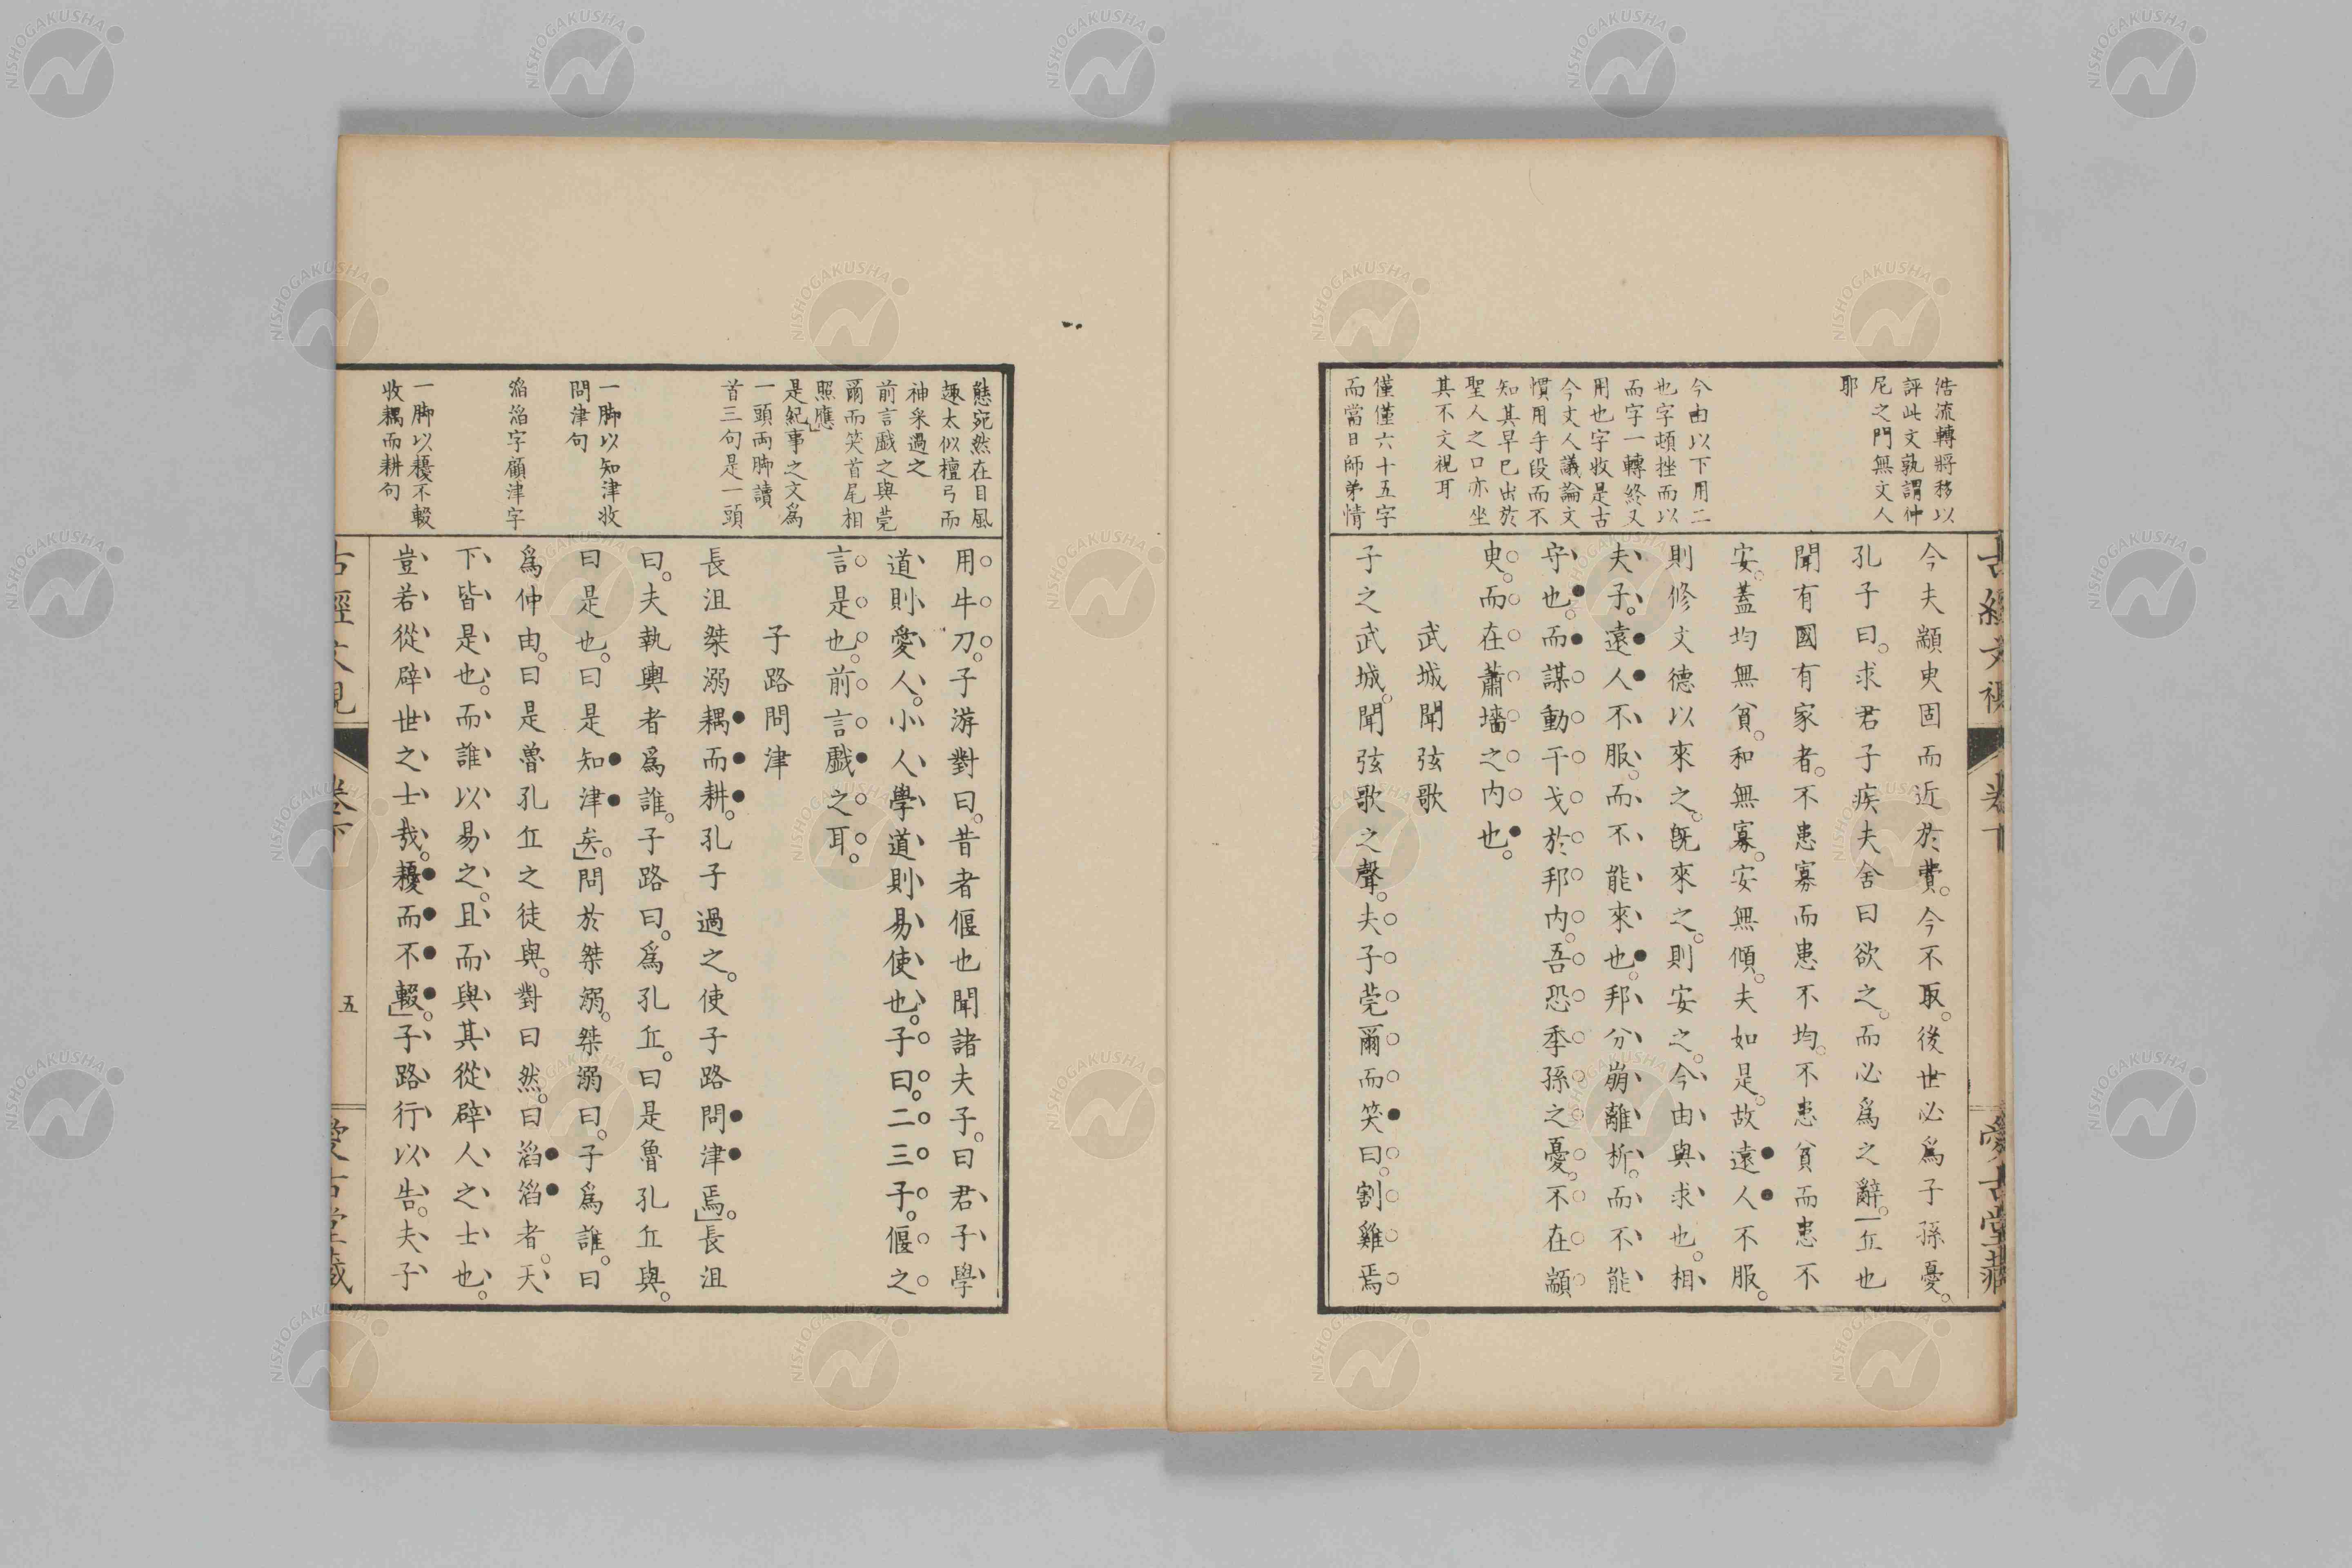 浩流轉將移以
評此文孰謂仲
尼之門無文人
耶
今由以下用二
也字頓挫而以
而字一轉終又
用也字收是古
今文人議論文
慣用手段而不
知其早已出於
聖人之口亦坐
其不文視耳
僅僅六十五字
而當日師弟情
今夫顓臾固而近於費。今不取。後世必爲子孫憂。
孔子曰。求君子疾夫舍曰欲之。而必爲之辭。丘也
聞有國有家者。不患寡而患不均。不患貧而患不
安。蓋均無貧。和無寡。安無傾。夫如是。故遠人不服。
則修文德以來之。既來之。則安之。今由與求也。相
夫子。遠人不服。而不能來也。邦分崩離析。而不能
守也。而謀動干戈於邦內。吾恐季孫之憂。不在顓
臾。而在蕭墻之内也。
武城聞弦歌
子之武城。聞弦歌之聲。夫子莞爾而笑曰。割雞焉
態宛然在目風
趣太似檀弓而
神采過之
前言戲之與莞
爾而笑首尾相
照應」
是紀事之文爲
一頭兩脚讀
首三句是一頭
一脚以知津收
問津句
滔滔字顧津字
一脚以耰不輟
收耦而耕句
用牛刀。子游對曰。昔者偃也聞諸夫子。曰君子學
道則愛人。小人學道則易使也。子曰。二三子。偃之
言是也。前言戲之耳。
子路問津
長沮桀溺耦而耕。孔子過之。使子路問津焉。」長沮
曰。夫執輿者爲誰。子路曰。爲孔丘。曰是魯孔丘與。
曰是也。曰是知津矣。」問於桀溺。桀溺曰。子爲誰。曰
爲仲由。曰是魯孔丘之徒與。對曰然。曰滔滔者。天
下皆是也。而誰以易之。且而與其從辟人之士也。
豈若從辟世之士哉。耰而不輟。」子路行以告。夫子
五
NISHOGAKUSHA